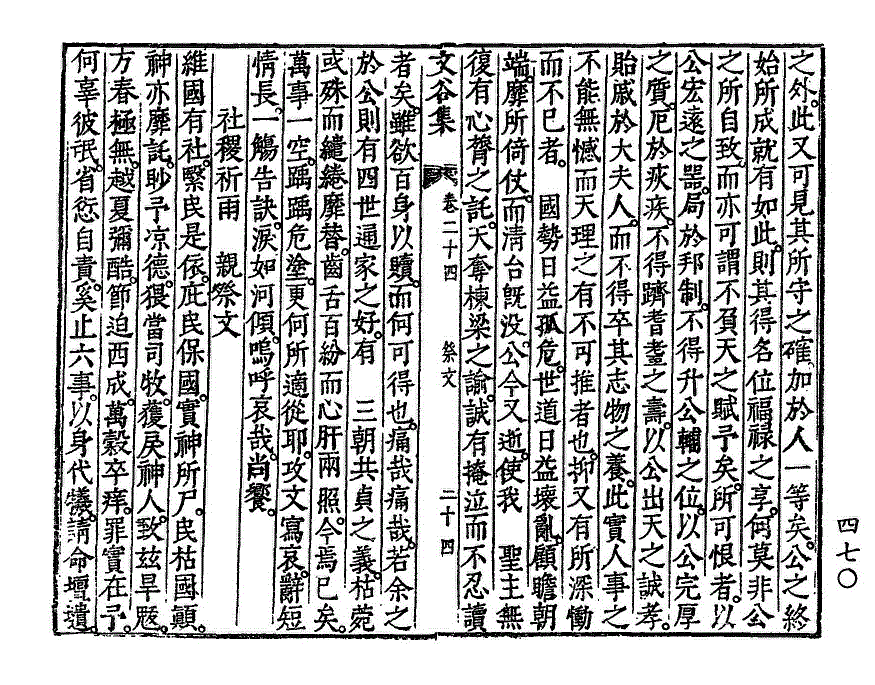 之外。此又可見其所守之確加於人一等矣。公之終
始所成就有如此。則其得各位福祿之享。何莫非公
之所自致。而亦可謂不負天之賦予矣。所可恨者。以
公宏遠之器。局於邦制。不得升公輔之位。以公完厚
之質。厄於疾疢。不得躋耆耋之壽。以公出天之誠孝。
貽戚於大夫人。而不得卒其志物之養。此實人事之
不能無憾而天理之有不可推者也。抑又有所深慟
而不已者。 國勢日益孤危。世道日益壞亂。顧瞻朝
端。靡所倚仗。而淸台旣沒。公今又逝。使我 聖主無
復有心膂之託。天奪棟梁之諭。誠有掩泣而不忍讀
文谷集 卷二十四 祭文 二十四
者矣。雖欲百身以贖。而何可得也。痛哉痛哉。若余之
於公則有四世通家之好。有 三朝共貞之義。枯菀
或殊而繾綣靡替。齒舌百紛而心肝兩照。今焉已矣。
萬事一空。踽踽危塗。更何所適從耶。攻文寫哀。辭短
情長。一觴告訣。淚如河傾。嗚呼哀哉。尙饗。
社稷祈雨 親祭文
維國有社。繄民是依。庇民保國。實神所尸。民枯國顚。
神亦靡託。眇予凉德。猥當司牧。獲戾神人。致玆旱熈。
方春極無。越夏彌酷。節迫西成。萬穀卒痒。罪實在予。
何辜彼氓。省愆自責。奚止六事。以身代犧。請命壇壝
四七〇